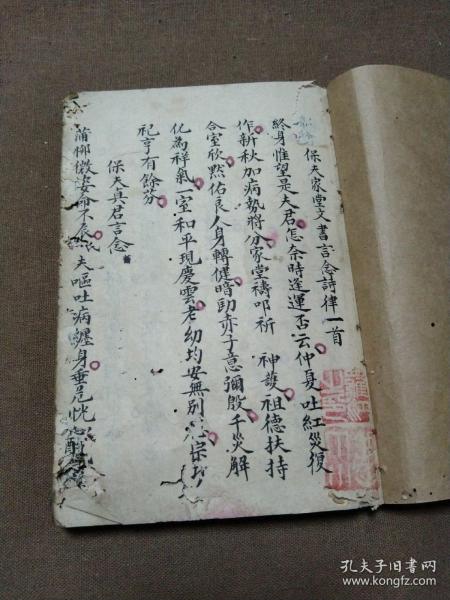 保夫家堂文書言念詩律一首
終身惟望是夫君怎奈時逢運否云仲夏吐紅災復
作新秋加病勢將分家堂禱叩祈 神護祖德扶持
合室欣默佑良人身轉健暗助赤子意彌殷千災解
化為祥氣一室和平現慶雲老幼均安無別
祀亨有餘芬
保夫真君言念
蒲柳微姿命不辰 夫嘔吐病纏身垂危恍
孔夫子旧书网
www.kongfz.com